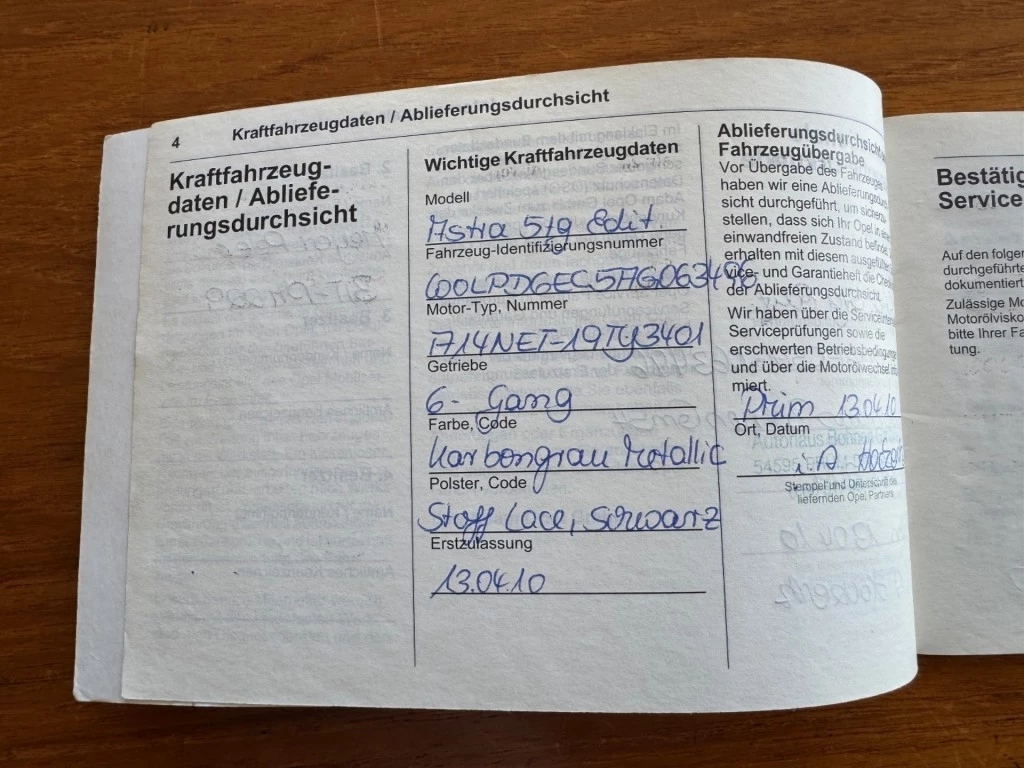 4 Kraftfahrzeugdaten / Ablieferungsdurchsicht
Kraftfahrzeug-
daten / Abliefe-
rungsdurchsicht
Wichtige Kraftfahrzeugdaten
Modell
Astra 5tg Edit.
Fahrzeug-Identifizierungsnummer
Motor-Typ, Nummer
A14NET-19TY3401
Getriebe
6- Gang
Farbe, Code
Karbongrau Metallic
Polster, Code
Stoff Lace, Schwarz
Erstzulassung
13.04.10
Ablieferungsdurchsicht
Fahrzeugübergabe
Vor Übergabe des Fahrzeuges
haben wir eine Ablieferungsdurch
sicht durchgeführt, um sicherzu
stellen, dass sich Ihr Opel in einem
einwandfreien Zustand befindet.
erhalten mit diesem ausgefüllten
vice- und Garantieheft die
der Ablieferungsdurchsicht.
Wir haben über die
Serviceprüfungen sowie die
erschwerten Betriebsbedingungen
und über die Motorölwechsel
miert.
Prüm 13.04.10
Ort, Datum
Autohaus
54595
i.A.
Stempel und Unterschrift des
liefernden Opel Partners
Bestätig
Service
Auf den folgen
durchgeführte
dokumentiert
Zulässige Mo
Motorölvisko
bitte Ihrer Fa
tung.